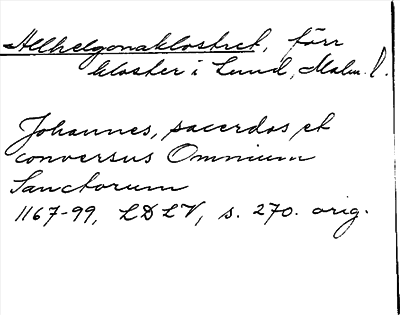 Allhelgonaklostret, förr
kloster i Lund, Malm. l.
Johannes, sacerdos et
conversus Omnium
Sanctorum
1167-99, LDLV, s. 270. orig.